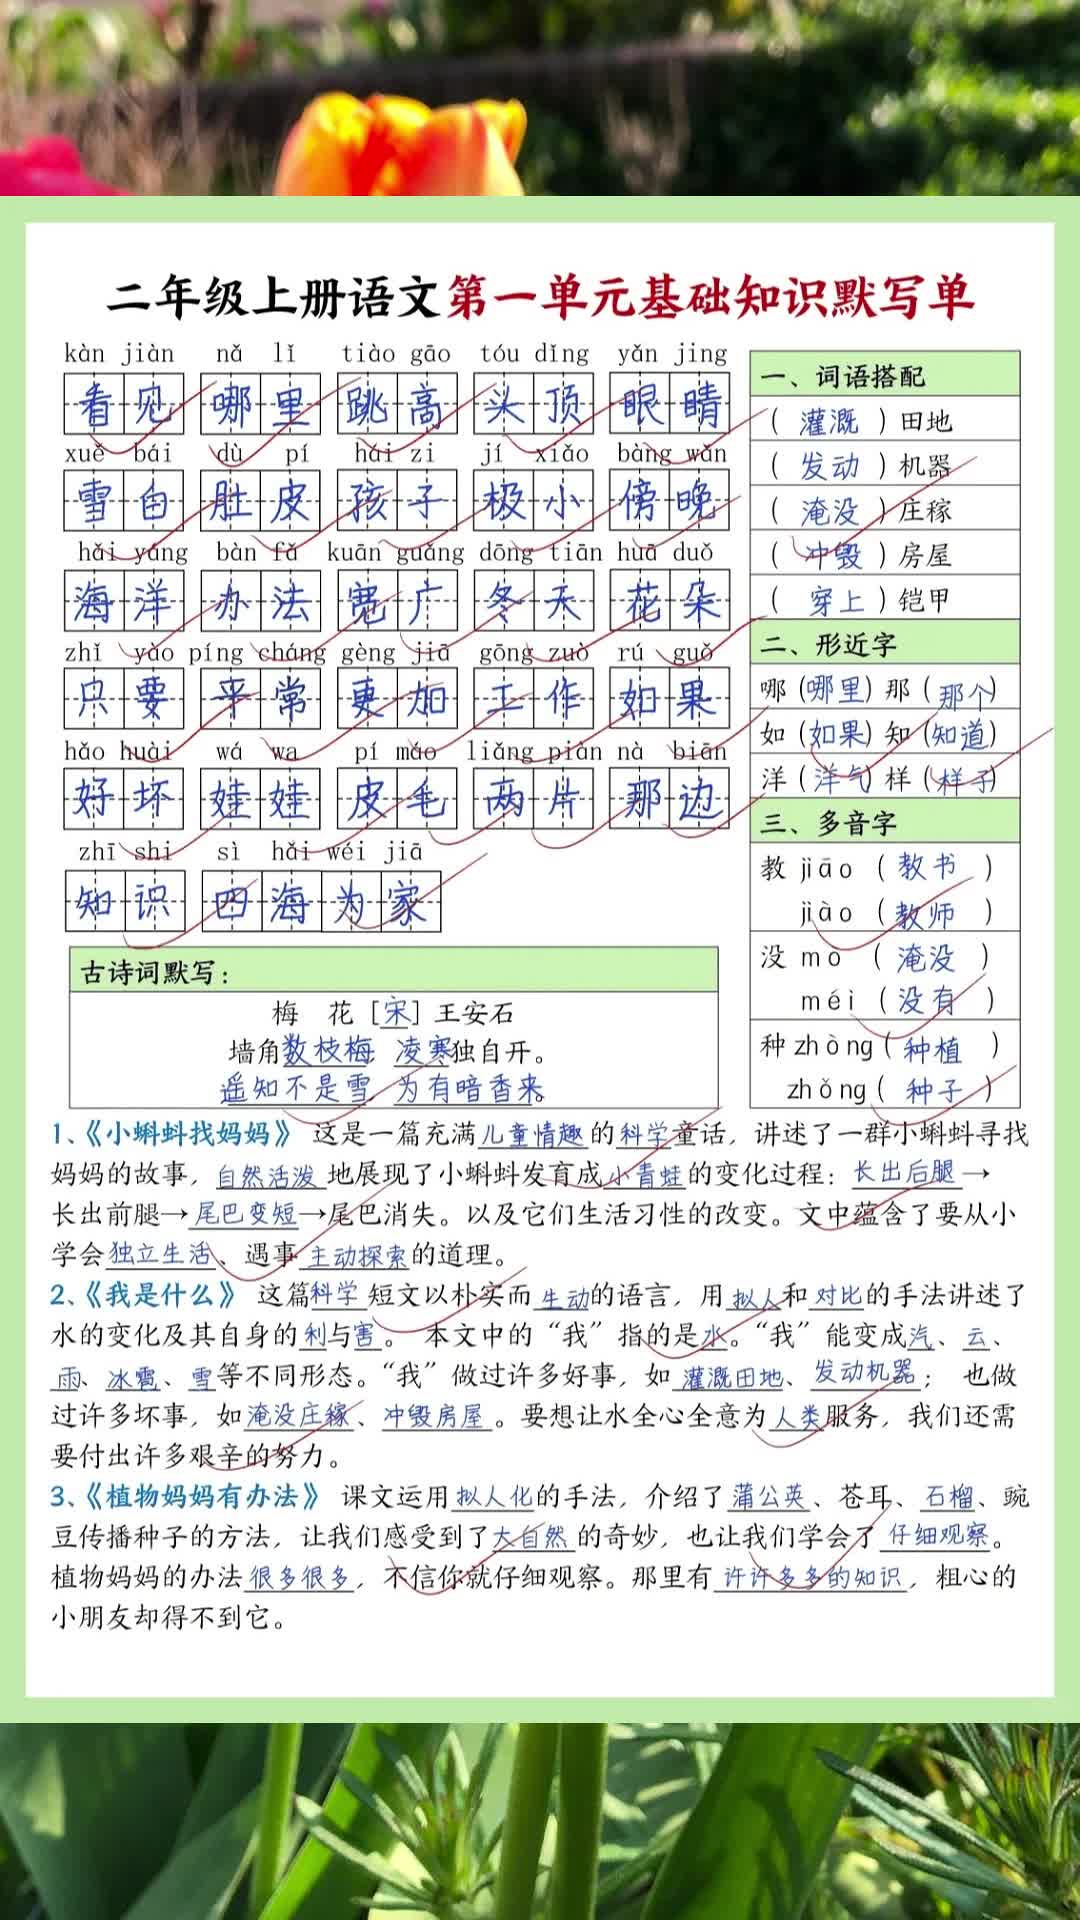 二年级上册语文第一单元基础知识默写单
kàn jiàn nǎ lǐ tiào gāo tóu dǐng yǎn jing
看见 哪里 跳高 头顶 眼睛
xuě bái dù pí hái zi jí xiǎo bàng wǎn
雪白 肚皮 孩子 极小 傍晚
hǎi yáng bàn fǎ kuān guǎng dōng tiān huā duǒ
海洋 办法 宽广 冬天 花朵
zhǐ yào píng cháng gèng jiā gōng zuò rú guǒ
只要 平常 更加 工作 如果
hǎo huài wá wa pí máo liǎng piàn nà biān
好坏 娃娃 皮毛 两片 那边
zhī shi sì hǎi wéi jiā
知识 四海为家
古诗词默写：
梅 花 [宋] 王安石
墙角数枝梅，凌寒独自开。
遥知不是雪，为有暗香来。
一、词语搭配
（灌溉）田地
（发动）机器
（淹没）庄稼
（冲毁）房屋
（穿上）铠甲
二、形近字
哪（哪里）那（那个）
如（如果）知（知道）
洋（洋气）样（样子）
三、多音字
教 jiāo（教书）
jiào（教师）
没 mo（淹没）
méi（没有）
种 zhòng（种植）
zhǒng（种子）
1、《小蝌蚪找妈妈》 这是一篇充满儿童情趣的科学童话，讲述了一群小蝌蚪寻找
妈妈的故事，自然活泼地展现了小蝌蚪发育成小青蛙的变化过程：长出后腿→
长出前腿→尾巴变短→尾巴消失。以及它们生活习性的改变。文中蕴含了要从小
学会独立生活、遇事主动探索的道理。
2、《我是什么》 这篇科学短文以朴实而生动的语言，用拟人和对比的手法讲述了
水的变化及其自身的利与害。 本文中的“我”指的是水。“我”能变成汽、云、
雨、冰雹、雪等不同形态。“我”做过许多好事，如灌溉田地、发动机器； 也做
过许多坏事，如淹没庄稼、冲毁房屋。要想让水全心全意为人类服务，我们还需
要付出许多艰辛的努力。
3、《植物妈妈有办法》 课文运用拟人化的手法，介绍了蒲公英、苍耳、石榴、豌
豆传播种子的方法，让我们感受到了大自然的奇妙，也让我们学会了仔细观察。
植物妈妈的办法很多很多，不信你就仔细观察。那里有许许多多的知识，粗心的
小朋友却得不到它。